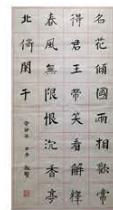 名花傾國兩相歡常
得君王帶笑看解釋
春風無限恨沉香亭
北倚闌干